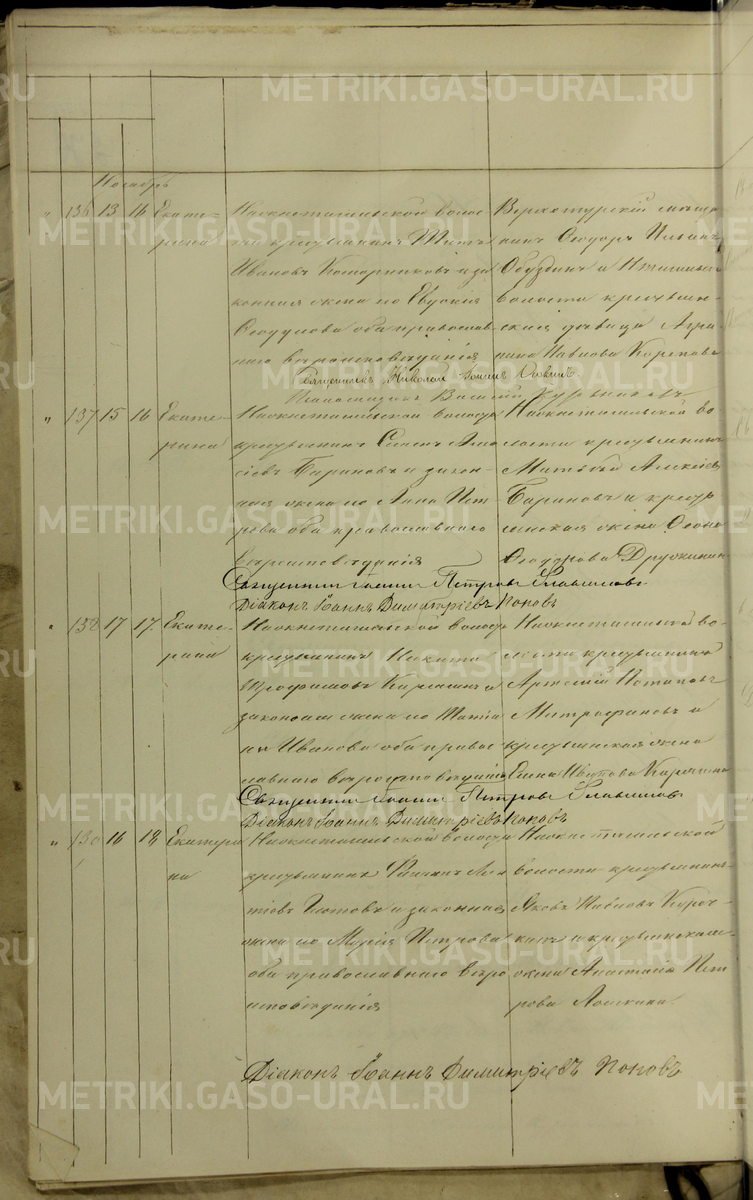 Ноябрь
" 136 13 16 Екате-
рина
Нижнетагильской волос
ти крестьянинъ Титъ
Ивановъ и за
конная жена его Евдокія
Ѳеодулова оба православ
наго вѣроисповѣданія
Верхотурскій мѣща
нинъ Ѳеодоръ Ильинъ
и Нижнетагил
волости крестьян-
ская дѣвица
Павлова
Священникъ Николай
Псаломщикъ Василій
" 137 15 16 Екате-
рина
Нижнетагильской волости
крестьянинъ Семенъ
Бариновъ и закон-
ная жена его Анна Пет
рова оба православнаго
вѣроисповѣданія
Нижнетагильской во
лости крестьянинъ
Матвѣй Алексѣев
Бариновъ и кресть
янская жена
Ѳеодорова Дружинин
Священникъ Іоаннъ Петровъ Славнинъ
Діаконъ Іоаннъ Димитріевъ Поповъ
" 138 17 17 Екате-
рина
Нижнетагильской волости
крестьянинъ Никита
Трофимовъ и
законная жена его Татіа
на Иванова оба правос
лавнаго вѣроисповѣданія
Нижнетагильской во
лости крестьянинъ
Артемій Потаповъ
Митрофановъ и
крестьянская жена
Елена
Священникъ Іоаннъ Петровъ Славнинъ
Діаконъ Іоаннъ Димитріевъ Поповъ
" 139 16 18 Екатери
на
Нижнетагильской волости
крестьянинъ
и законная
жена его Марія Петрова
оба православнаго вѣро
исповѣданія
Нижнетагильской
волости крестьянинъ
Яковъ Павловъ
и крестьянская
жена Анастасія Пет
рова
Діаконъ Іоаннъ Димитріевъ Поповъ
METRIKI.GASO-URAL.RU